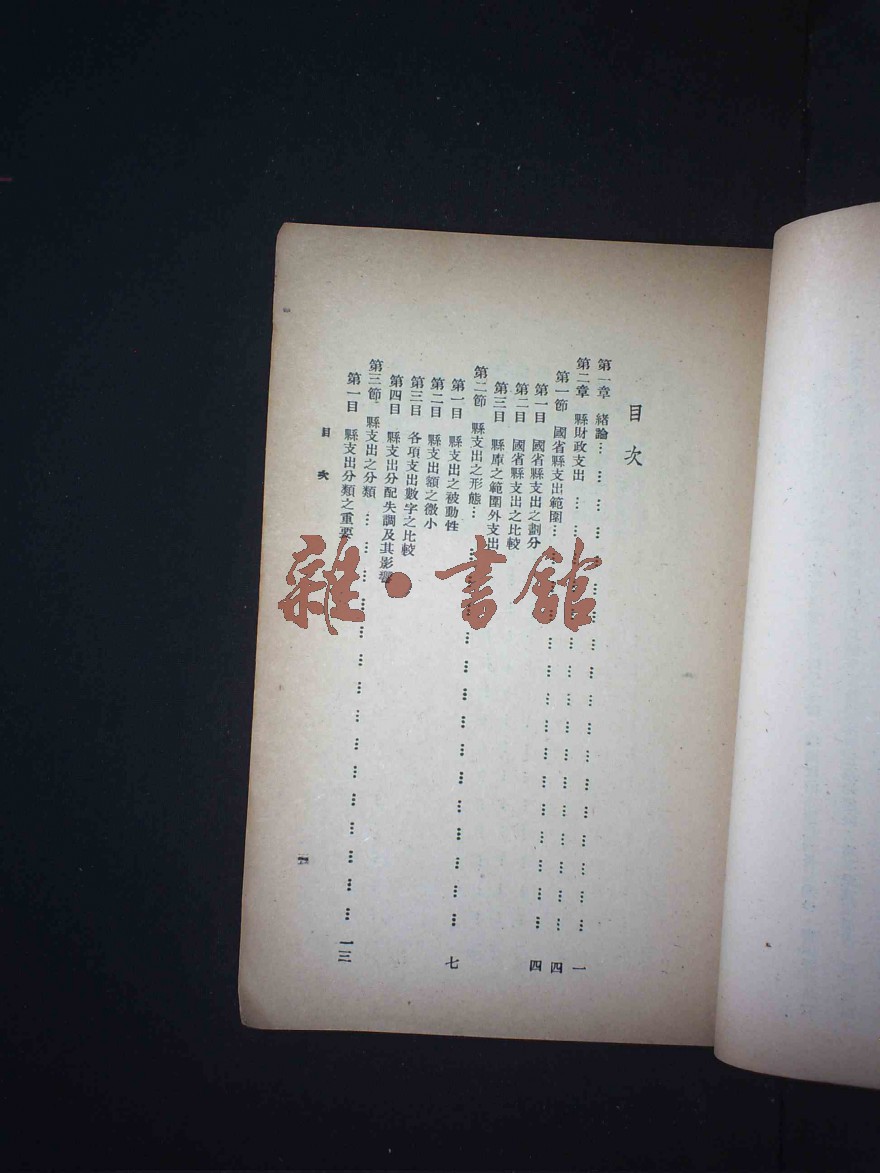 目次
第一章 緒論…………………………………一
第二章 縣財政支出…………………………………四
第一節 國省縣支出範圍…………………………………四
第一目 國省縣支出之劃分
第二目 國省縣支出之比較
第三目 縣庫之範圍外支出
第二節 縣支出之形態…………………………………七
第一目 縣支出之被動性
第二目 縣支出額之微小
第三目 各項支出數字之比較
第四目 縣支出分配失調及其影響
第三節 縣支出之分類…………………………………一三
第一目 縣支出分類之重要
目次
雜·書館